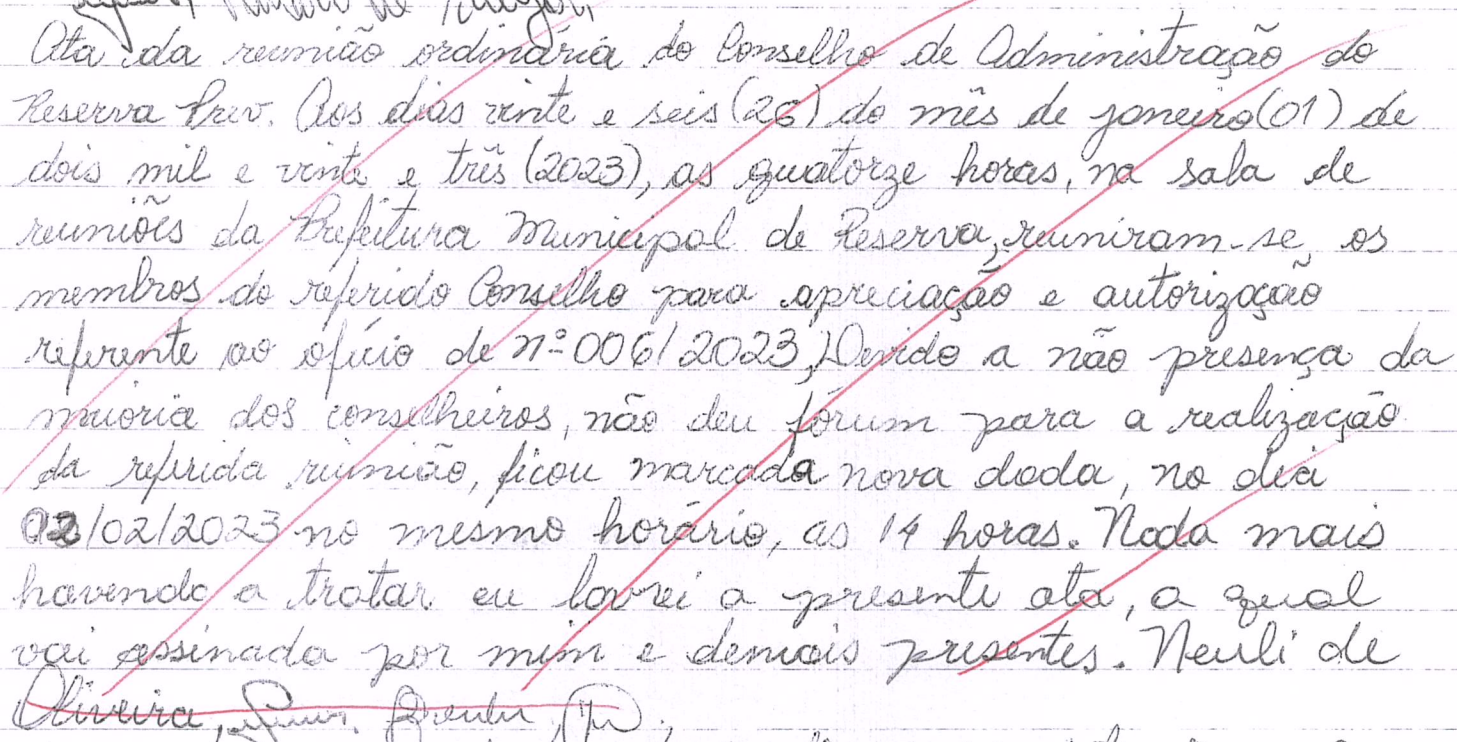 Ata da reunião ordinária do Conselho de Administração do
Reserva Prev. Aos dias vinte e seis (26) do mês de janeiro (01) de
dois mil e vinte e três (2023), as quatorze horas, na sala de
reuniões da Prefeitura Municipal de Reserva, reuniram-se os
membros do referido Conselho para apreciação e autorização
referente ao ofício de nº 006/2023, Devido a não presença da
maioria dos conselheiros, não deu fórum para a realização
da referida reunião, ficou marcada nova dada, no dia
02/02/2023 no mesmo horário, as 14 horas. Nada mais
havendo a tratar eu lavrei a presente ata, a qual
vai assinada por mim e demais presentes. Neuli de
Oliveira,